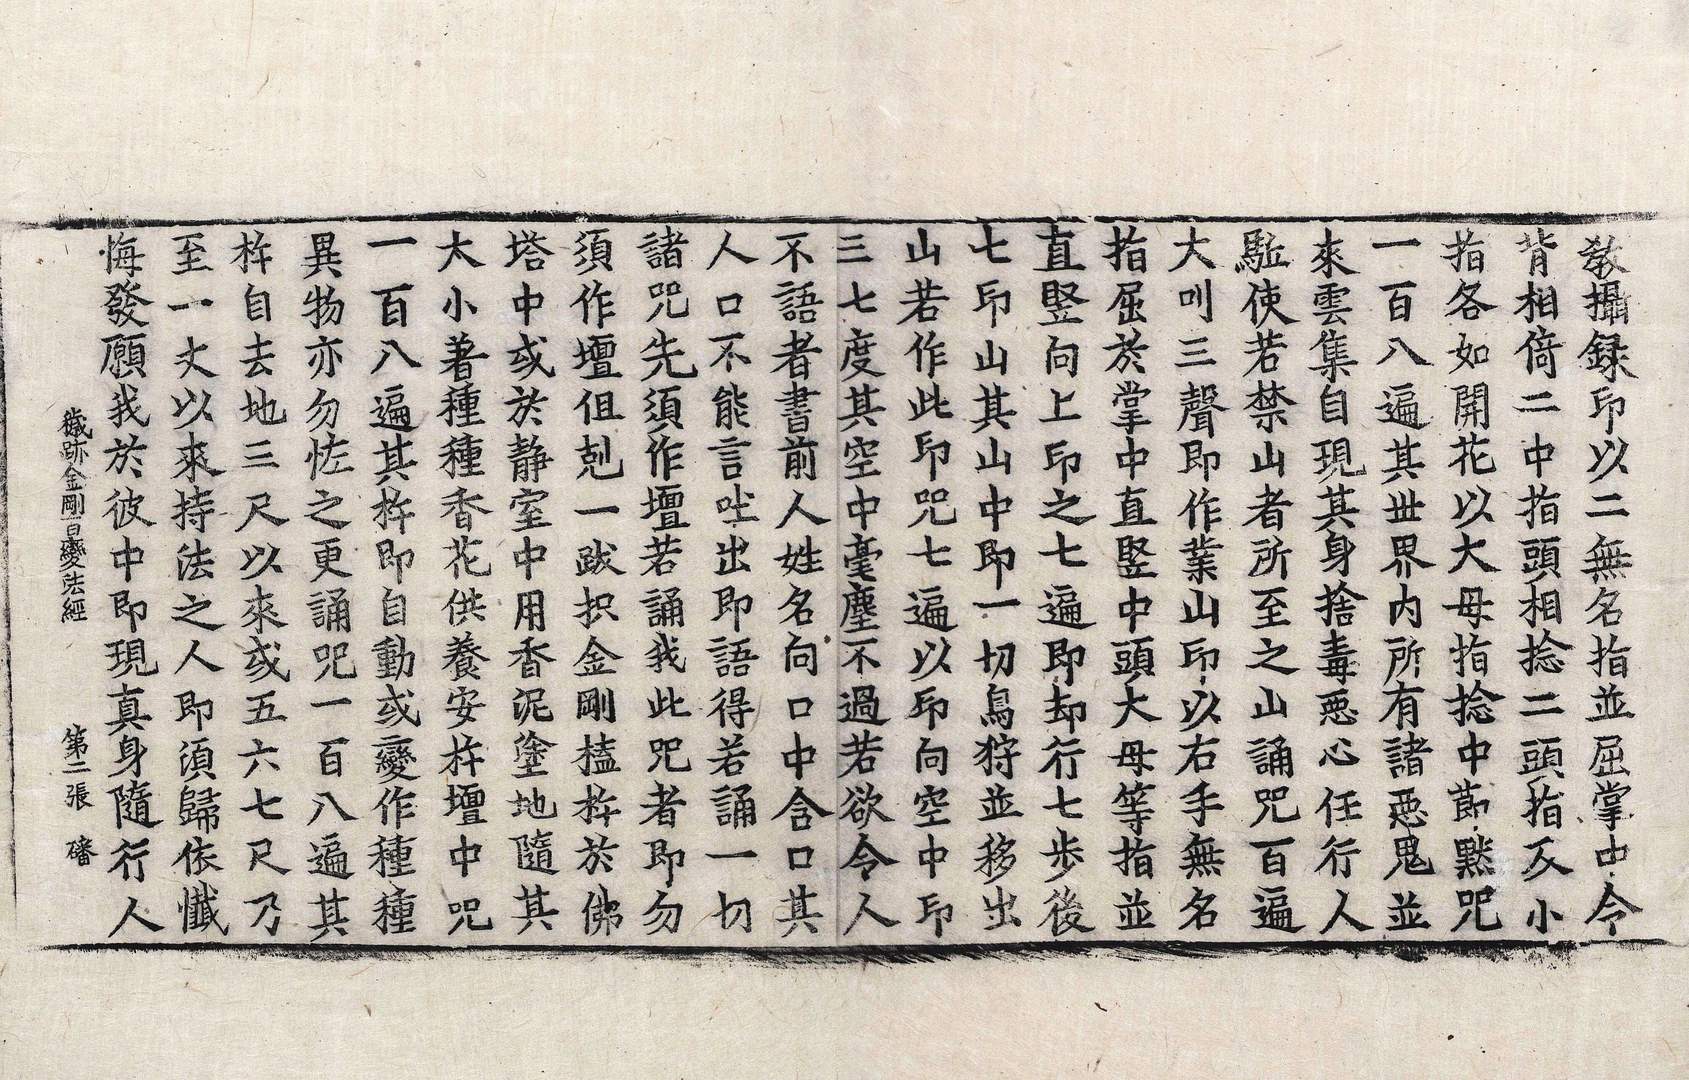 教攝録印以二無名指並屈掌中令
背相倚二中指頭相捻二頭指及小
指各如開花以大母指捻中節黙咒
一百八遍其丗界內所有諸惡鬼並
來雲集自現其身捨毒惡心任行人
駈使若禁山者所至之山誦咒百遍
大叫三聲即作業山印以右手無名
指屈於掌中直竪中頭大母等指並
直竪向上印之七遍即却行七步後
七印山其山中即一切鳥狩並移出
山若作此印咒七遍以印向空中印
三七度其空中毫塵不過若欲令人
不語者書前人姓名向口中含口其
人口不能言吐出即語得若誦一切
諸咒先須作壇若誦我此咒者即勿
須作壇但剋一跋抧金剛榼杵於佛
塔中或於静室中用香泥塗地隨其
大小著種種香花供養安杵壇中咒
一百八遍其杵即自動或變作種種
異物亦勿恠之更誦咒一百八遍其
杵自去地三尺以來或五六七尺乃
至一丈以來持法之人即須歸依懺
悔發願我於彼中即現真身隨行人
穢跡金剛百變法經 第二張 磻